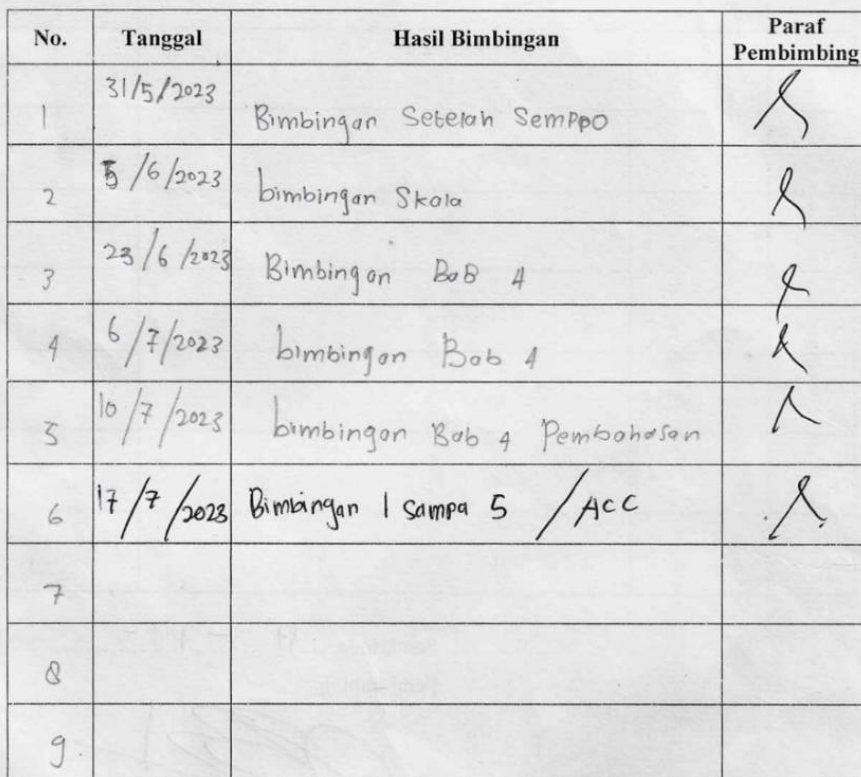 No. Tanggal Hasil Bimbingan Paraf Pembimbing
1 31/5/2023 Bimbingan Setelah Semppo
2 5/6/2023 bimbingan Skala
3 23/6/2023 Bimbingan BaB 4
4 6/7/2023 bimbingan Bab 4
5 10/7/2023 bimbingan Bab 4 Pembahasan
6 17/7/2023 Bimbingan 1 sampa 5 / ACC
7
8
9.